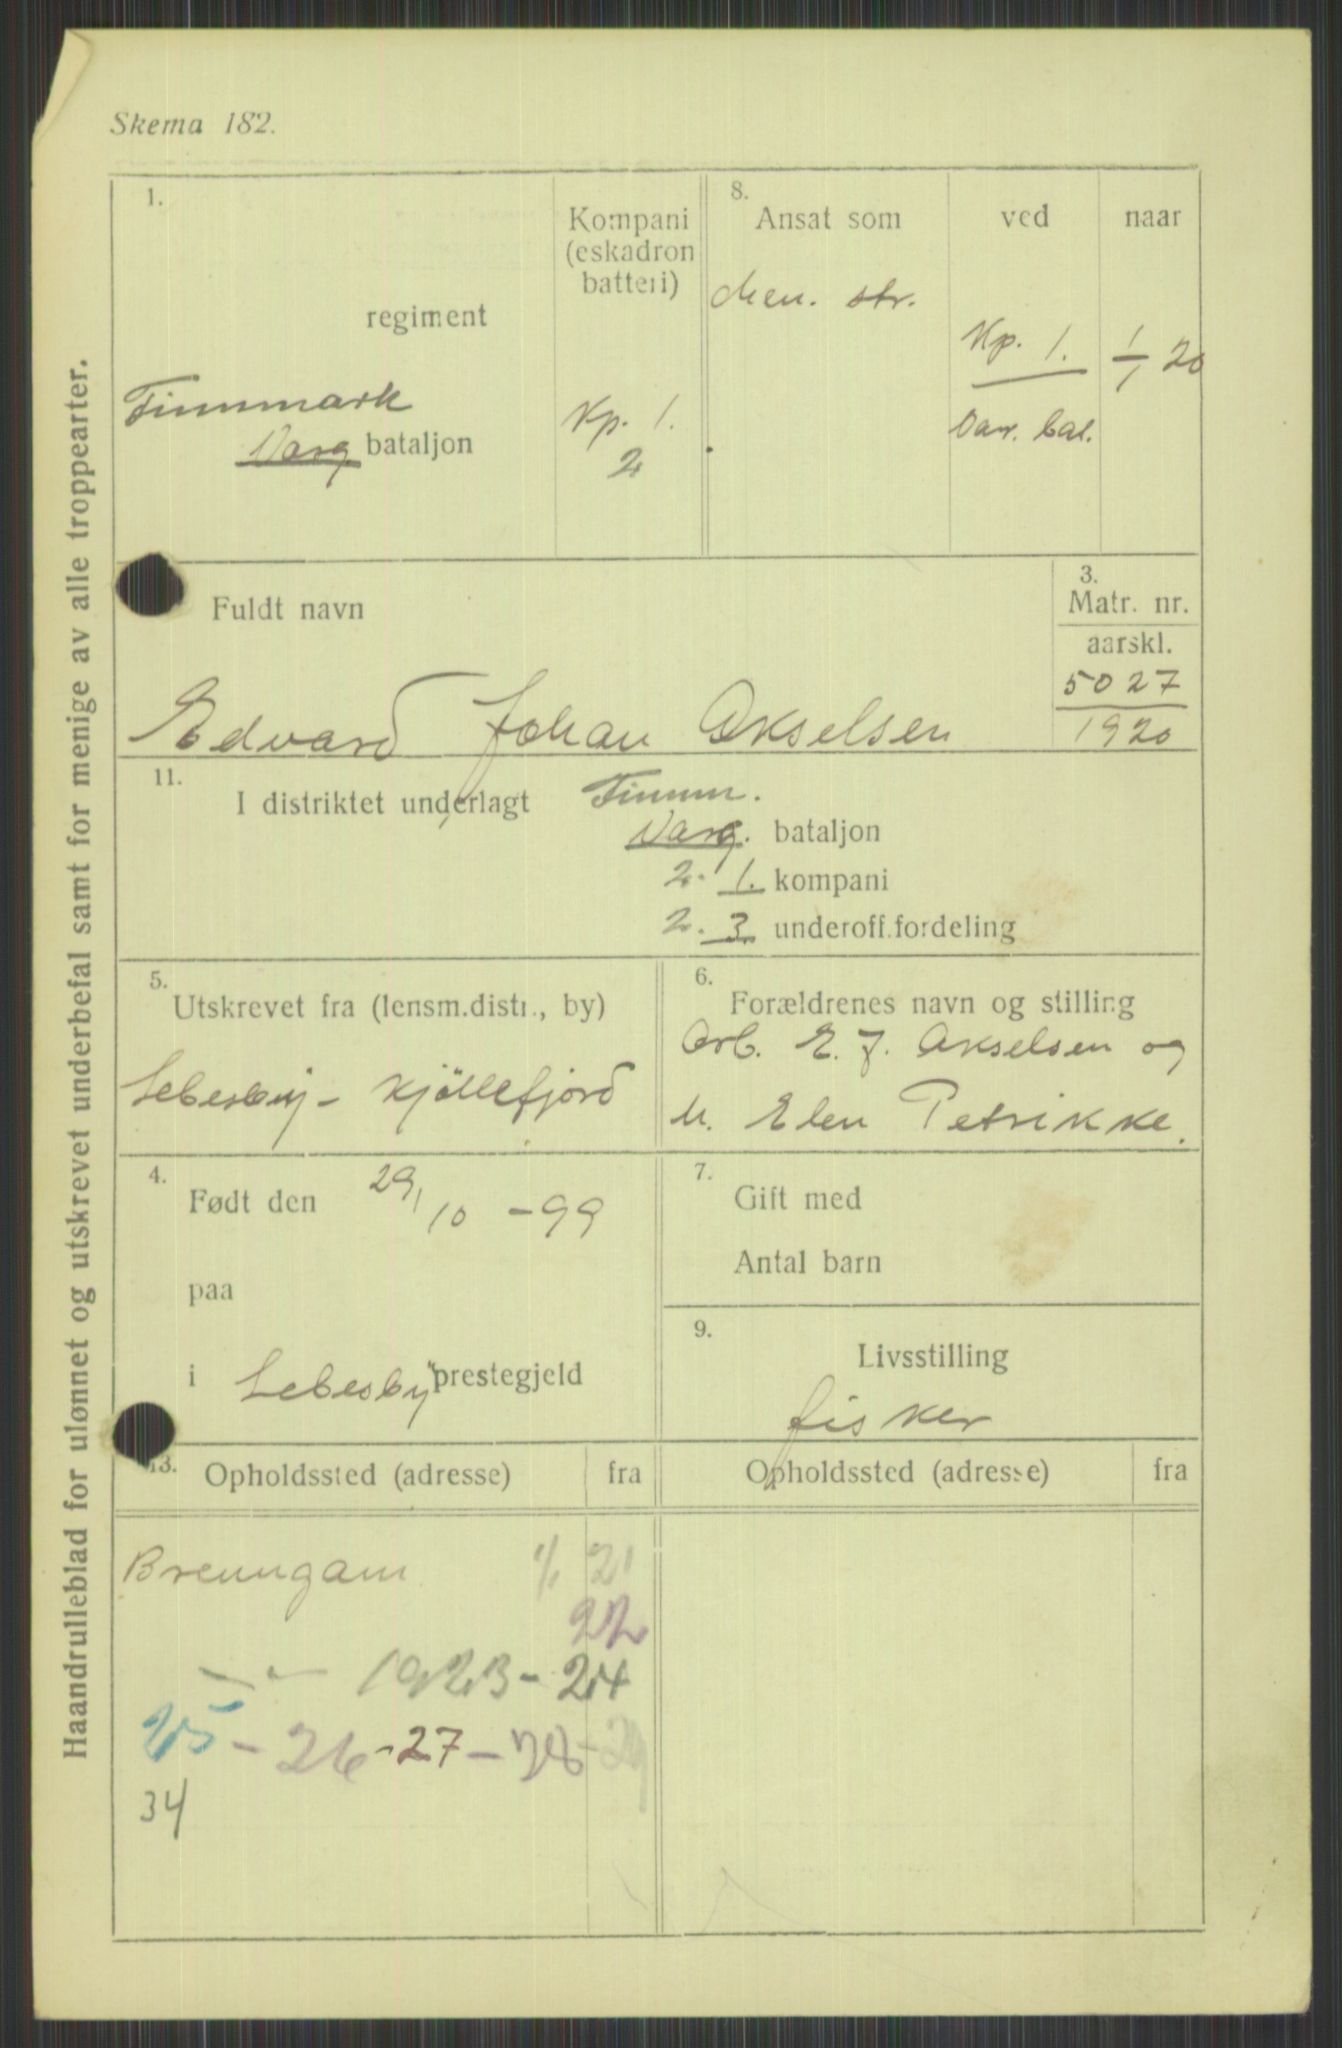 Skema 182.
Haandrulleblad for ulønnet og utskrevet underbefal samt for menige av alle troppearter.
1.
regiment
Finnmark
Varg bataljon
Kompani
(eskadron
batteri)
Kp. 1.
2
8.
Ansat som
ved
naar
Men. str.
Kp. 1.
1/1 20
Var. bal.
Fuldt navn
Edvard Johan Akselsen
3.
Matr. nr.
aarskl.
5027
1920
11.
I distriktet underlagt Finnm.
Varg. bataljon
2. 1. kompani
2. 3. underoff.fordeling
5.
Utskrevet fra (lensm.distr., by)
Lebesby - Kjöllefjord
6.
Forældrenes navn og stilling
Arb. E. J. Akselsen og
h. Elen Petrikke.
4.
Født den 29/10 - 99
paa
i Lebesby prestegjeld
7.
Gift med
Antal barn
9.
Livsstilling
fisker
13.
Opholdssted (adresse)
fra
Opholdssted (adresse)
fra
Brenngam 1/1 21
22
- " - 1923 - 24
25 - 26 - 27 - 28 - 29
34